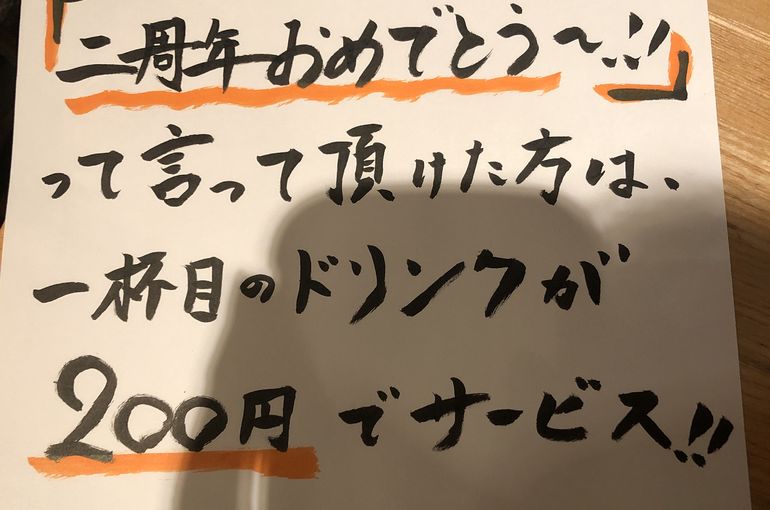 「二周年おめでとう〜!!」
って言って頂けた方は、
一杯目のドリンクが
200円でサービス!!